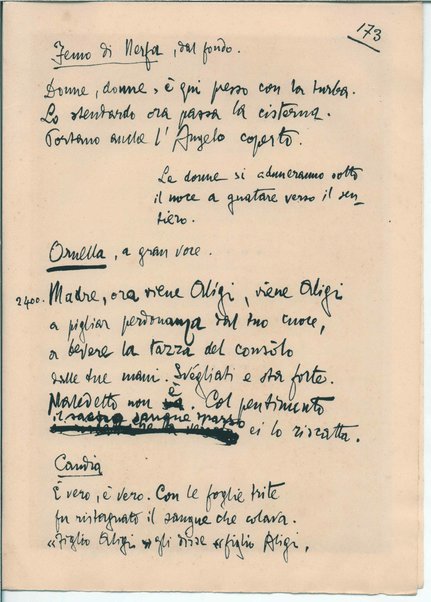 173
Femo di Nerfa, dal fondo.
Donne, donne, è qui presso con la turba.
Lo stendardo ora passa la cisterna.
Portano anche l'Angelo coperto.
Le donne si aduneranno sotto
il noce a guatare verso il sen-
tiero.
Ornella, a gran voce.
2400. Madre, ora viene Aligi, viene Aligi
a pigliar perdonanza dal tuo cuore,
a bevere la tazza del consòlo
dalle tue mani. Svegliati e sta forte.
Maledetto non è. Col pentimento
il sacro sangue sparso
ei lo riscatta.
Candia
È vero, è vero. Con le foglie trite
fu ristagnato il sangue che colava.
«Figlio Aligi» gli disse «figlio Aligi,